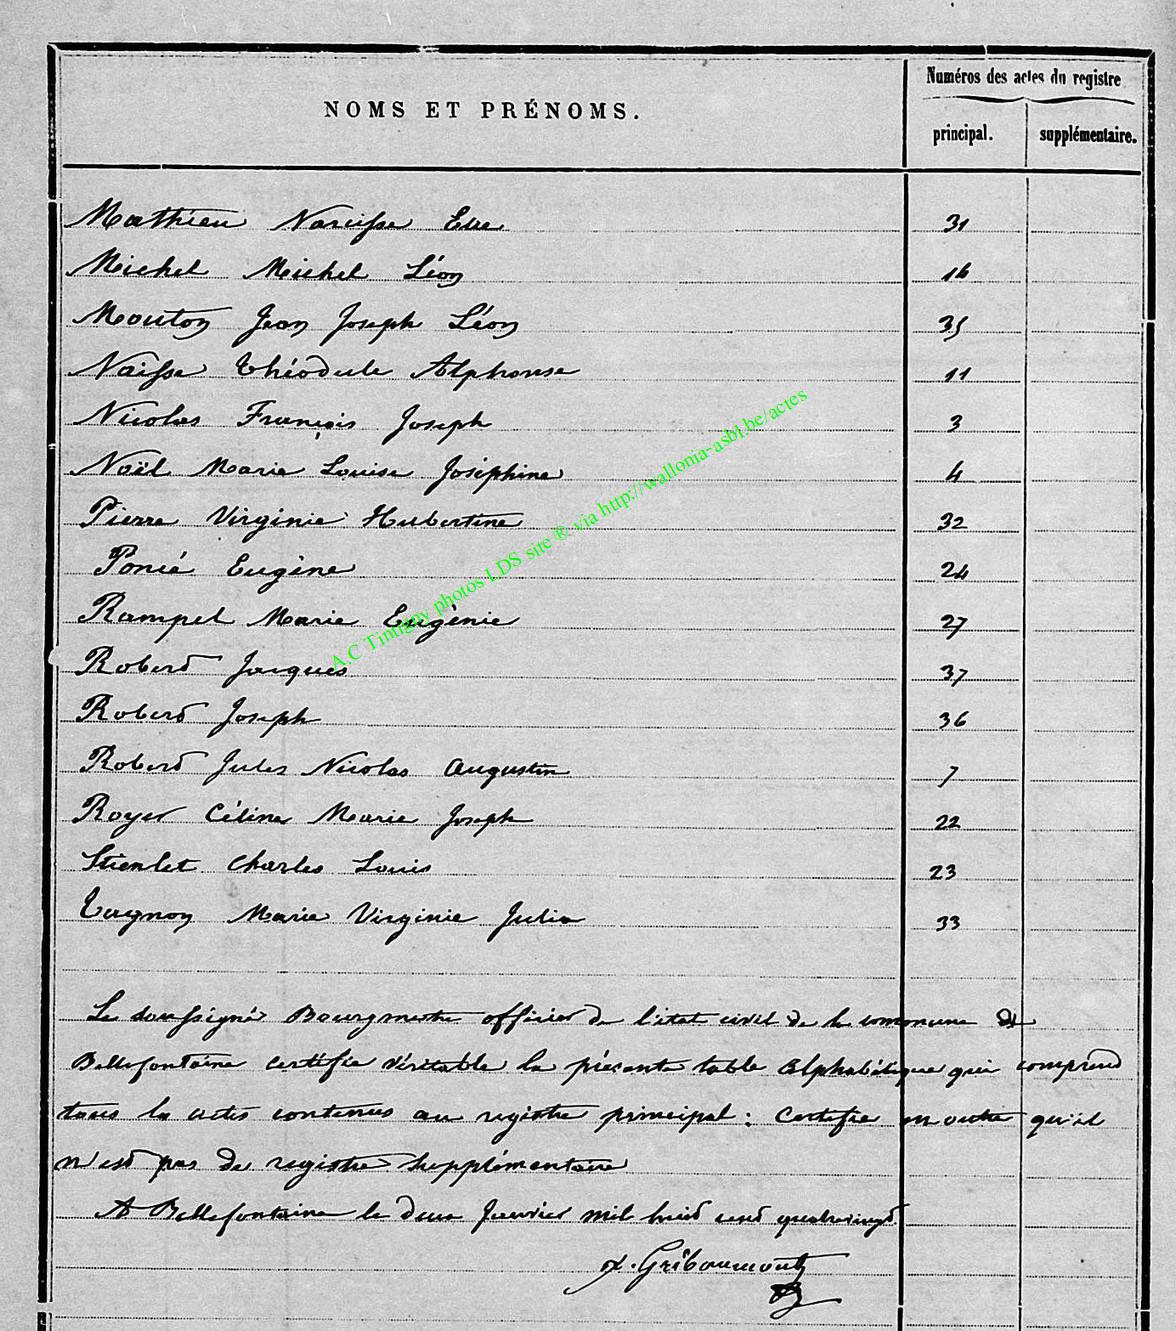 Numéros des actes du registre
NOMS ET PRÉNOMS.
principal. supplémentaire.
Mathieu Narcisse Elie 31
Michel Michel Léon 16
Mouton Jean Joseph Léon 35
Naisse Théodule Alphonse 11
Nicolas François Joseph 3
Noël Marie Louise Joséphine 4
Pierre Virginie Hubertine 32
Poncé Eugène 24
Rampel Marie Eugénie 27
Roberd Jacques 37
Roberd Joseph 36
Roberd Jules Nicolas Augustin 7
Royer Céline Marie Joseph 22
Stienlet Charles Louis 23
Tagnon Marie Virginie Julia 33
Le soussigné Bourgmestre officier de l'état civil de la commune de
Bellefontaine certifie véritable la présente table alphabétique qui comprend
tous les actes contenus au registre principal : certifie en outre qu'il
n'est pas de registre supplémentaire
A Bellefontaine le deux Janvier mil huit cent quatrevingt.
Gribaumont
A.C Tintigny photos LDS site ® via http://wallonia-asbl.be/actes